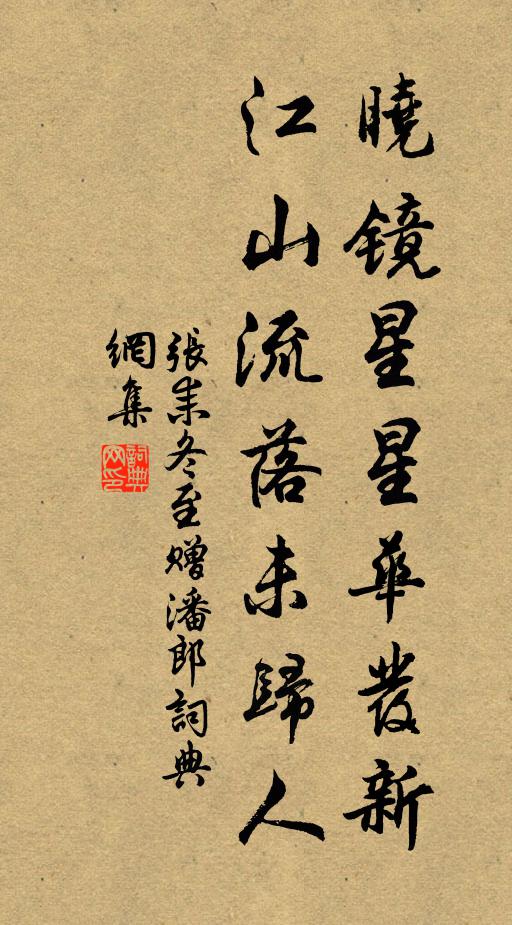 曉镜星星華發新
江山流落未歸人
張耒冬至贈潘郎詞典
網集
詞典
网印